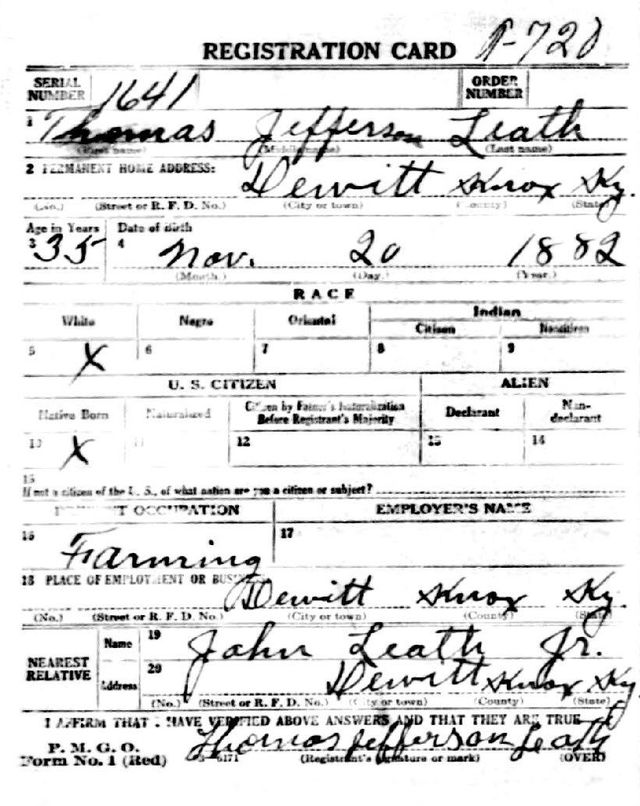 REGISTRATION CARD
SERIAL NUMBER 1641 ORDER NUMBER
1 Thomas Jefferson Leath
(First name) (Middle name) (Last name)
2 PERMANENT HOME ADDRESS: Dewitt Knox Ky.
(No.) (Street or R. F. D. No.) (City or town) (County) (State)
Age in Years Date of Birth
3 35 4 Nov. 20 1882
(Month.) (Day.) (Year.)
RACE
White Negro Oriental Indian
Citizen Noncitizen
5 X 6 7 8 9
U. S. CITIZEN ALIEN
Native Born Naturalized Citizen by Father's Naturalization Before Registrant's Majority Declarant Non-declarant
10 X 11 12 13 14
15
If not a citizen of the U. S., of what nation are you a citizen or subject?
PRESENT OCCUPATION EMPLOYER'S NAME
16 Farming 17
18 PLACE OF EMPLOYMENT OR BUSINESS: Dewitt Knox Ky.
(No.) (Street or R. F. D. No.) (City or town) (County) (State)
NEAREST RELATIVE Name 19 John Leath Jr.
Address 20 Dewitt Knox Ky.
(No.) (Street or R. F. D. No.) (City or town) (County) (State)
I AFFIRM THAT I HAVE VERIFIED ABOVE ANSWERS AND THAT THEY ARE TRUE
P. M. G. O.
Form No. 1 (Red) Thomas Jefferson Leath
(Registrant's signature or mark) (OVER)